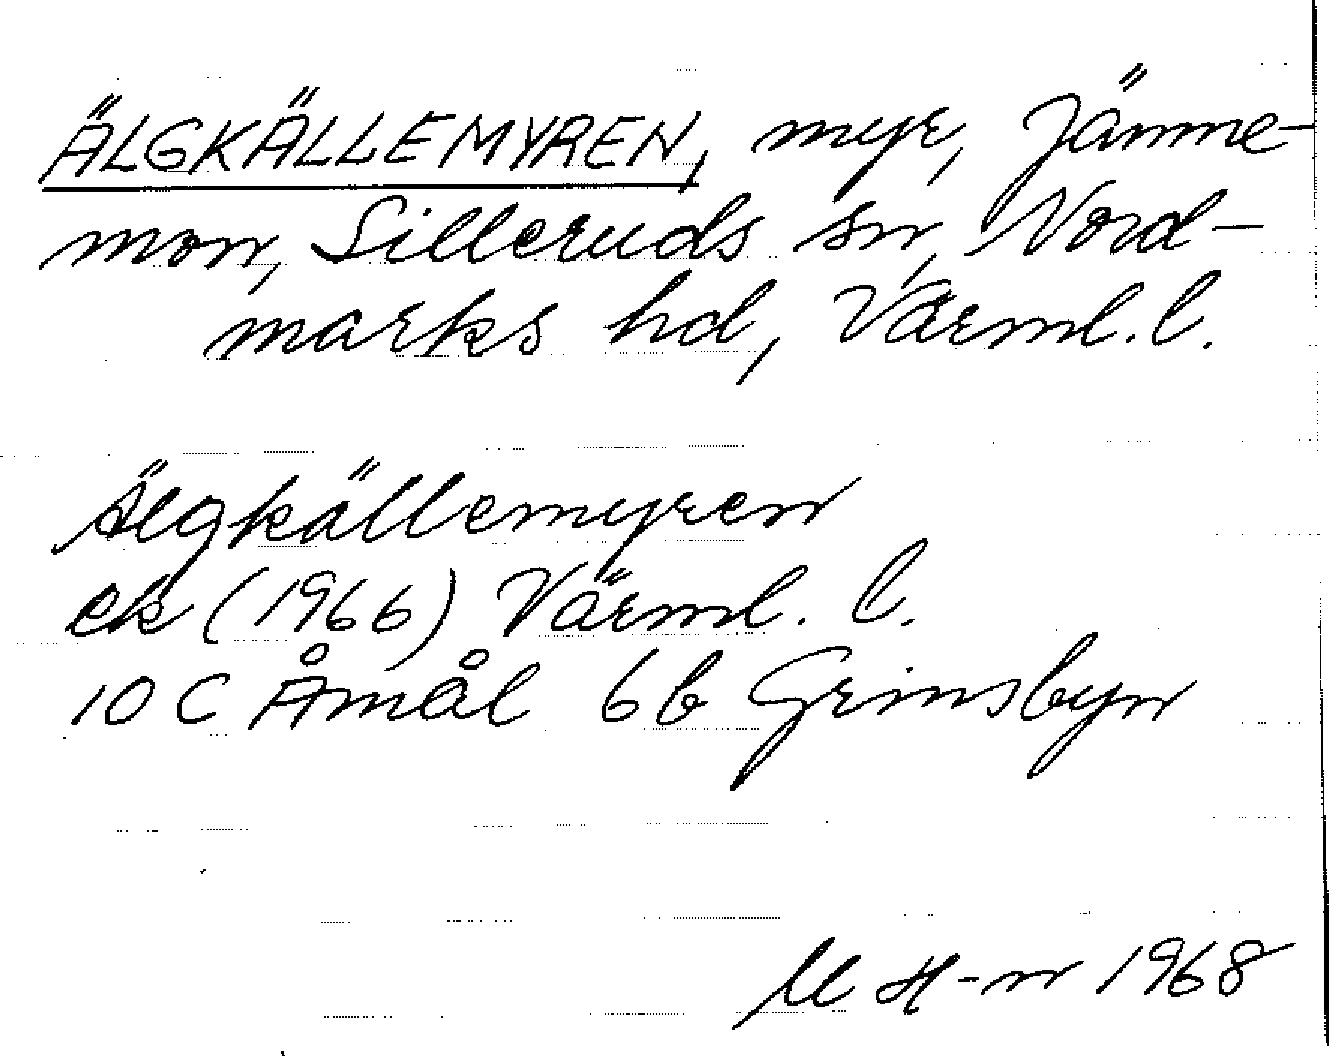 ÄLGKÄLLEMYREN, myr, Jämme-
mon, Silleruds sn, Nord-
marks hd, Värml. l.
Älgkällemyren
ek (1966) Värml. l.
10 C Åmål 6b Grinsbyn
M H-n 1968